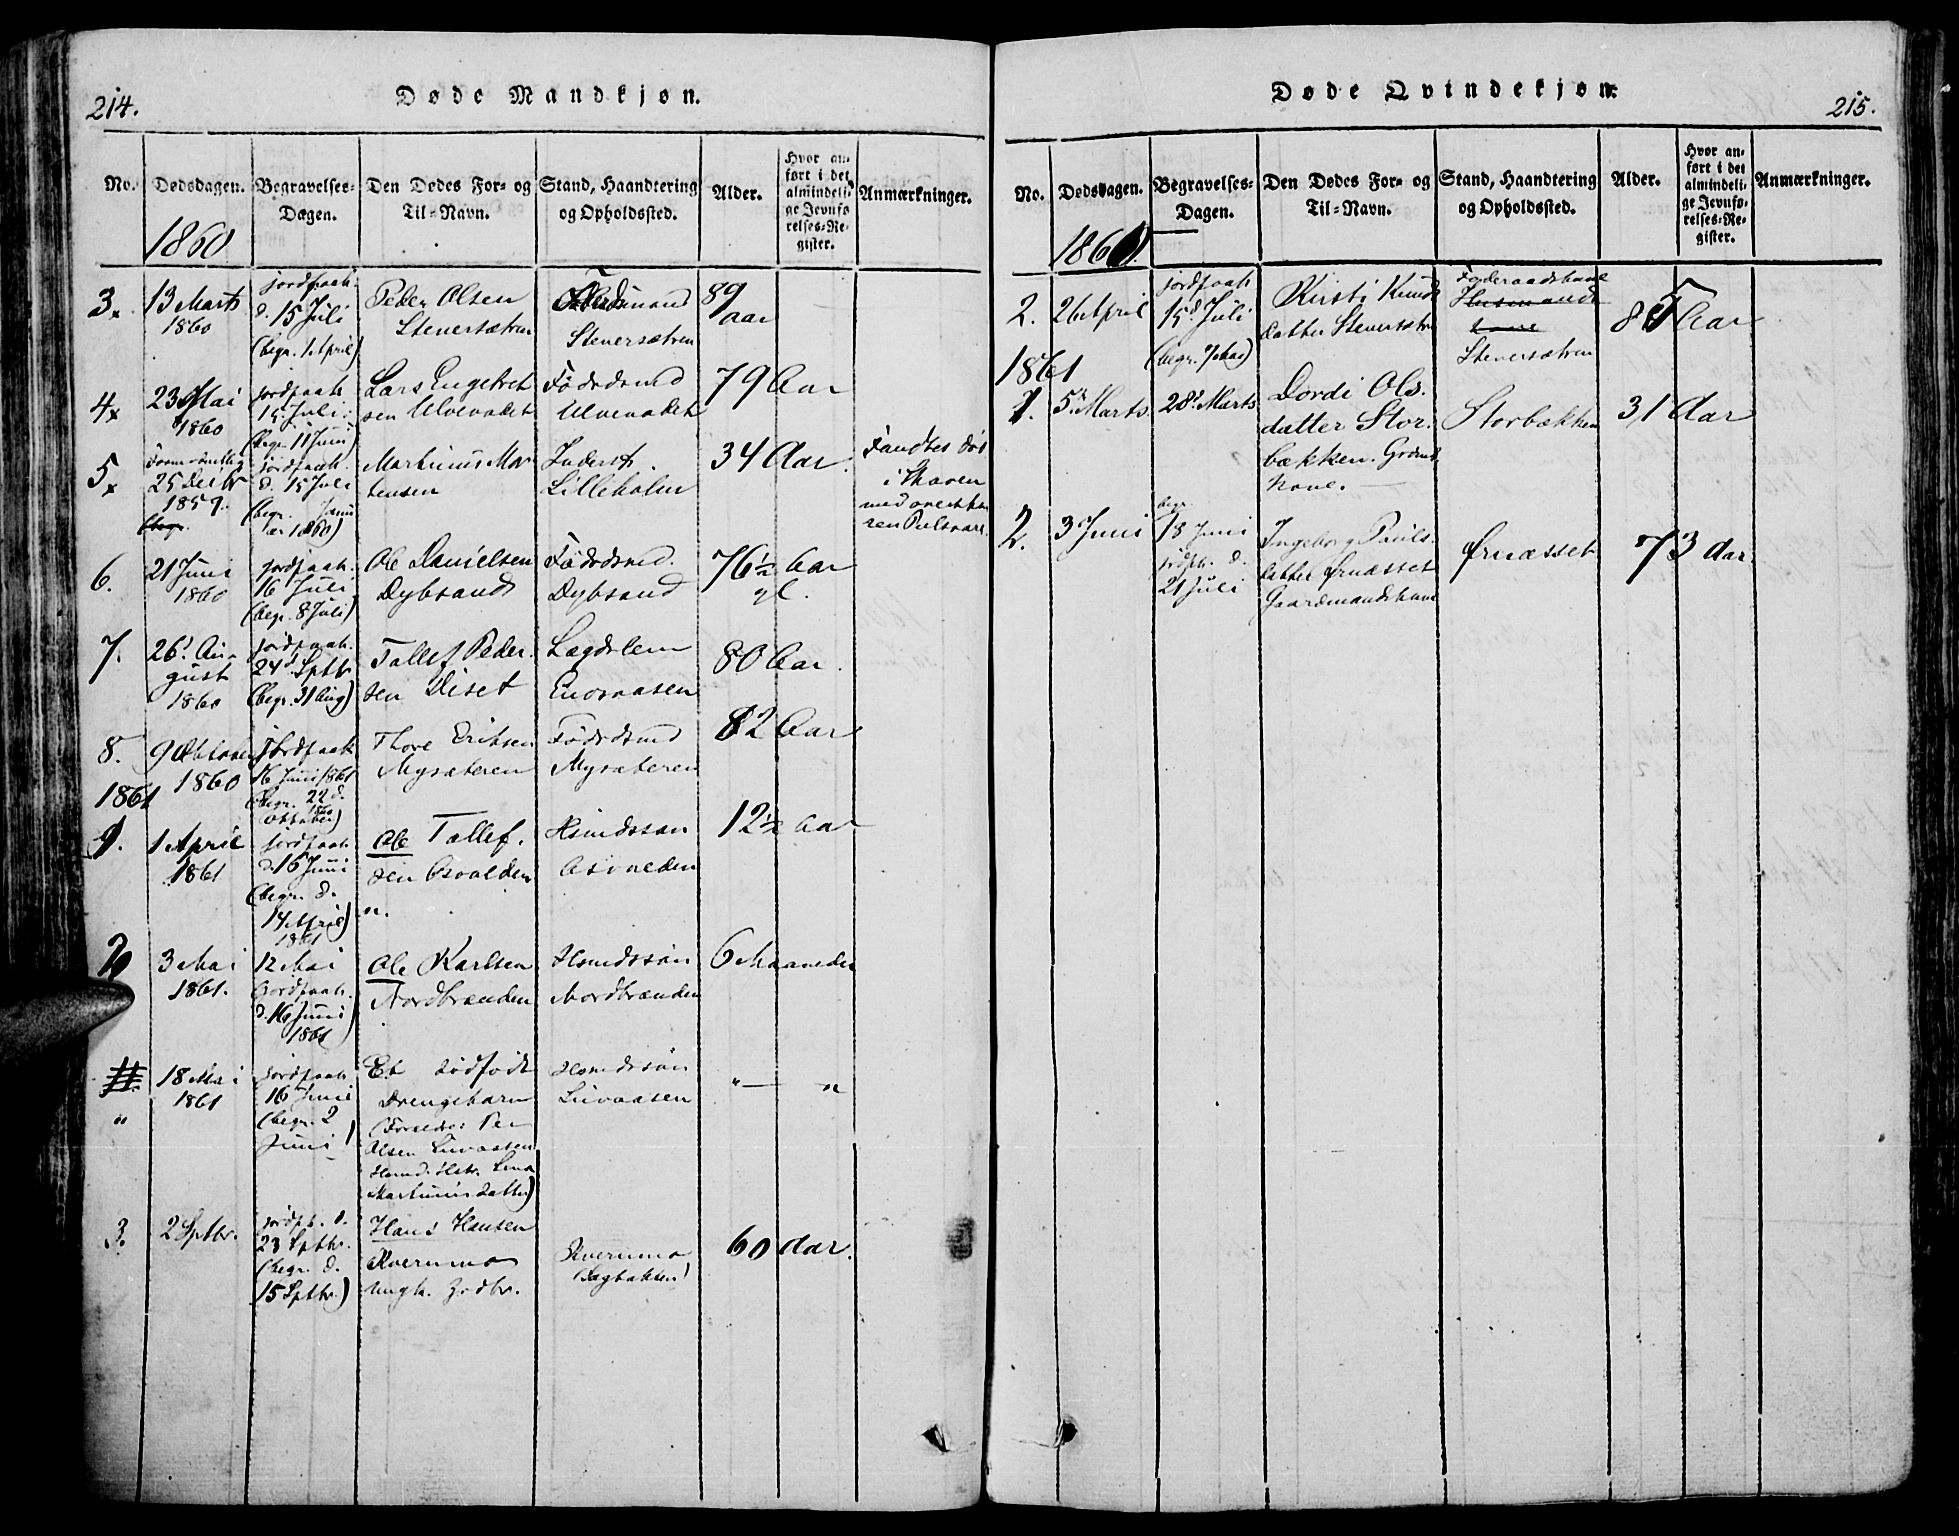 214.
Døde Mandkjøn.
No.
Dødsdagen.
Begravelses-
Dagen.
Den Dødes For- og
Til-Navn.
Stand, Haandtering
og Opholdssted.
Alder.
Hvor an-
ført i det
almindeli-
ge Jevnfø-
relses-Re-
gister.
Anmærkninger.
1860
3.
13 Marts
1860
jordpaak.
d. 15 Juli
(begr. 1 April)
Peder Olsen
Stenersætren
Stenersætren
89
aar
4
23 Mai
1860
jordpaak.
15 Juli
(begr. 11 Juni)
Lars Engebret
sen Ulvevadet
Födrdsmd
Ulvevadet
79 Aar
5
25 Decbr
1859.
begr.
jordpaak.
d. 15 Juli
(begr. Janu
ar 1860)
Martinus Mor
tensen
Inderst
Lilleholen
34 Aar.
Fandtes död
i Skoven
med overskaa
ren Pulsaare.
6.
21 Juni
1860
jordpaak.
16 Juli
(begr. 8 Juli)
Ole Danielsen
Dybsand
Födrdsmd.
Dybsand
76½ Aar
gl.
7.
26d Au-
gust
1860
jordpaak.
24d Sptbr
(begr. 31 Aug)
Tollef Peder-
sen Diset
Lægdslem
Enovaasen
80 Aar.
8.
9 Oktober
1860
Jordpaak
16 Juni 1861
(begr. 22 d.
October)
1860
Thore Eriksen
Mysæteren
Födrdsmd
Mysæteren
82 Aar
1861
1.
1 April
1861
jordpaak.
d. 16 Juni
(begr. d.
14 April)
1861
Ole Tollef.
sen Osvolden
Hsmdssøn
Osvolden
12½ Aar
2
3 Mai
1861.
12 Mai
(jordpaak.
d. 16 Juni)
1861
Ole Karlsen
Nordbrænden
Hsmdssøn
Nordbrænden
6 Maaneder
"
18 Mai
1861
jordpaak.
16 Juni
(begr. 2
Juni)
Et dödfödt
Drengebarn
(Forældre: Per
Olsen Livaasen
Hsmd. Hstr. Lena
Martinusdatter)
Hsmdssøn
Livaasen
" — "
3.
2 Sptbr.
jordpk. d.
23 Sptbr.
(begr. d.
15 Sptbr.)
Hans Hansen
Kvernmo
ungk. Jrdbr.
Kvernmo
(Bagbakken)
60 Aar.
215.
Døde Qvindekjøn.
No.
Dødsdagen.
Begravelses-
Dagen.
Den Dødes For- og
Til-Navn.
Stand, Haandtering
og Opholdssted.
Alder.
Hvor an-
ført i det
almindeli-
ge Jevnfø-
relses-Re-
gister.
Anmærkninger.
1860.
2.
26 April
jordpaak
15d Juli
(begr. 7 Mai)
Kirsti Knuds
datter Stenersætr
Föderaadskone
Husmands
kone
Stenersætren
85 Aar
1861
1.
5 Marts
28d Marts
Dordi Ols.
datter Stor-
bækken. Grdmds
kone.
Storbækken
31 Aar
2.
3 Juni
begr.
18 Juni
jrdpk. d.
21 Juli
Ingeborg Pauls.
datter Ørnæsset
Gaardmandskone
Ørnæsset
73 Aar.